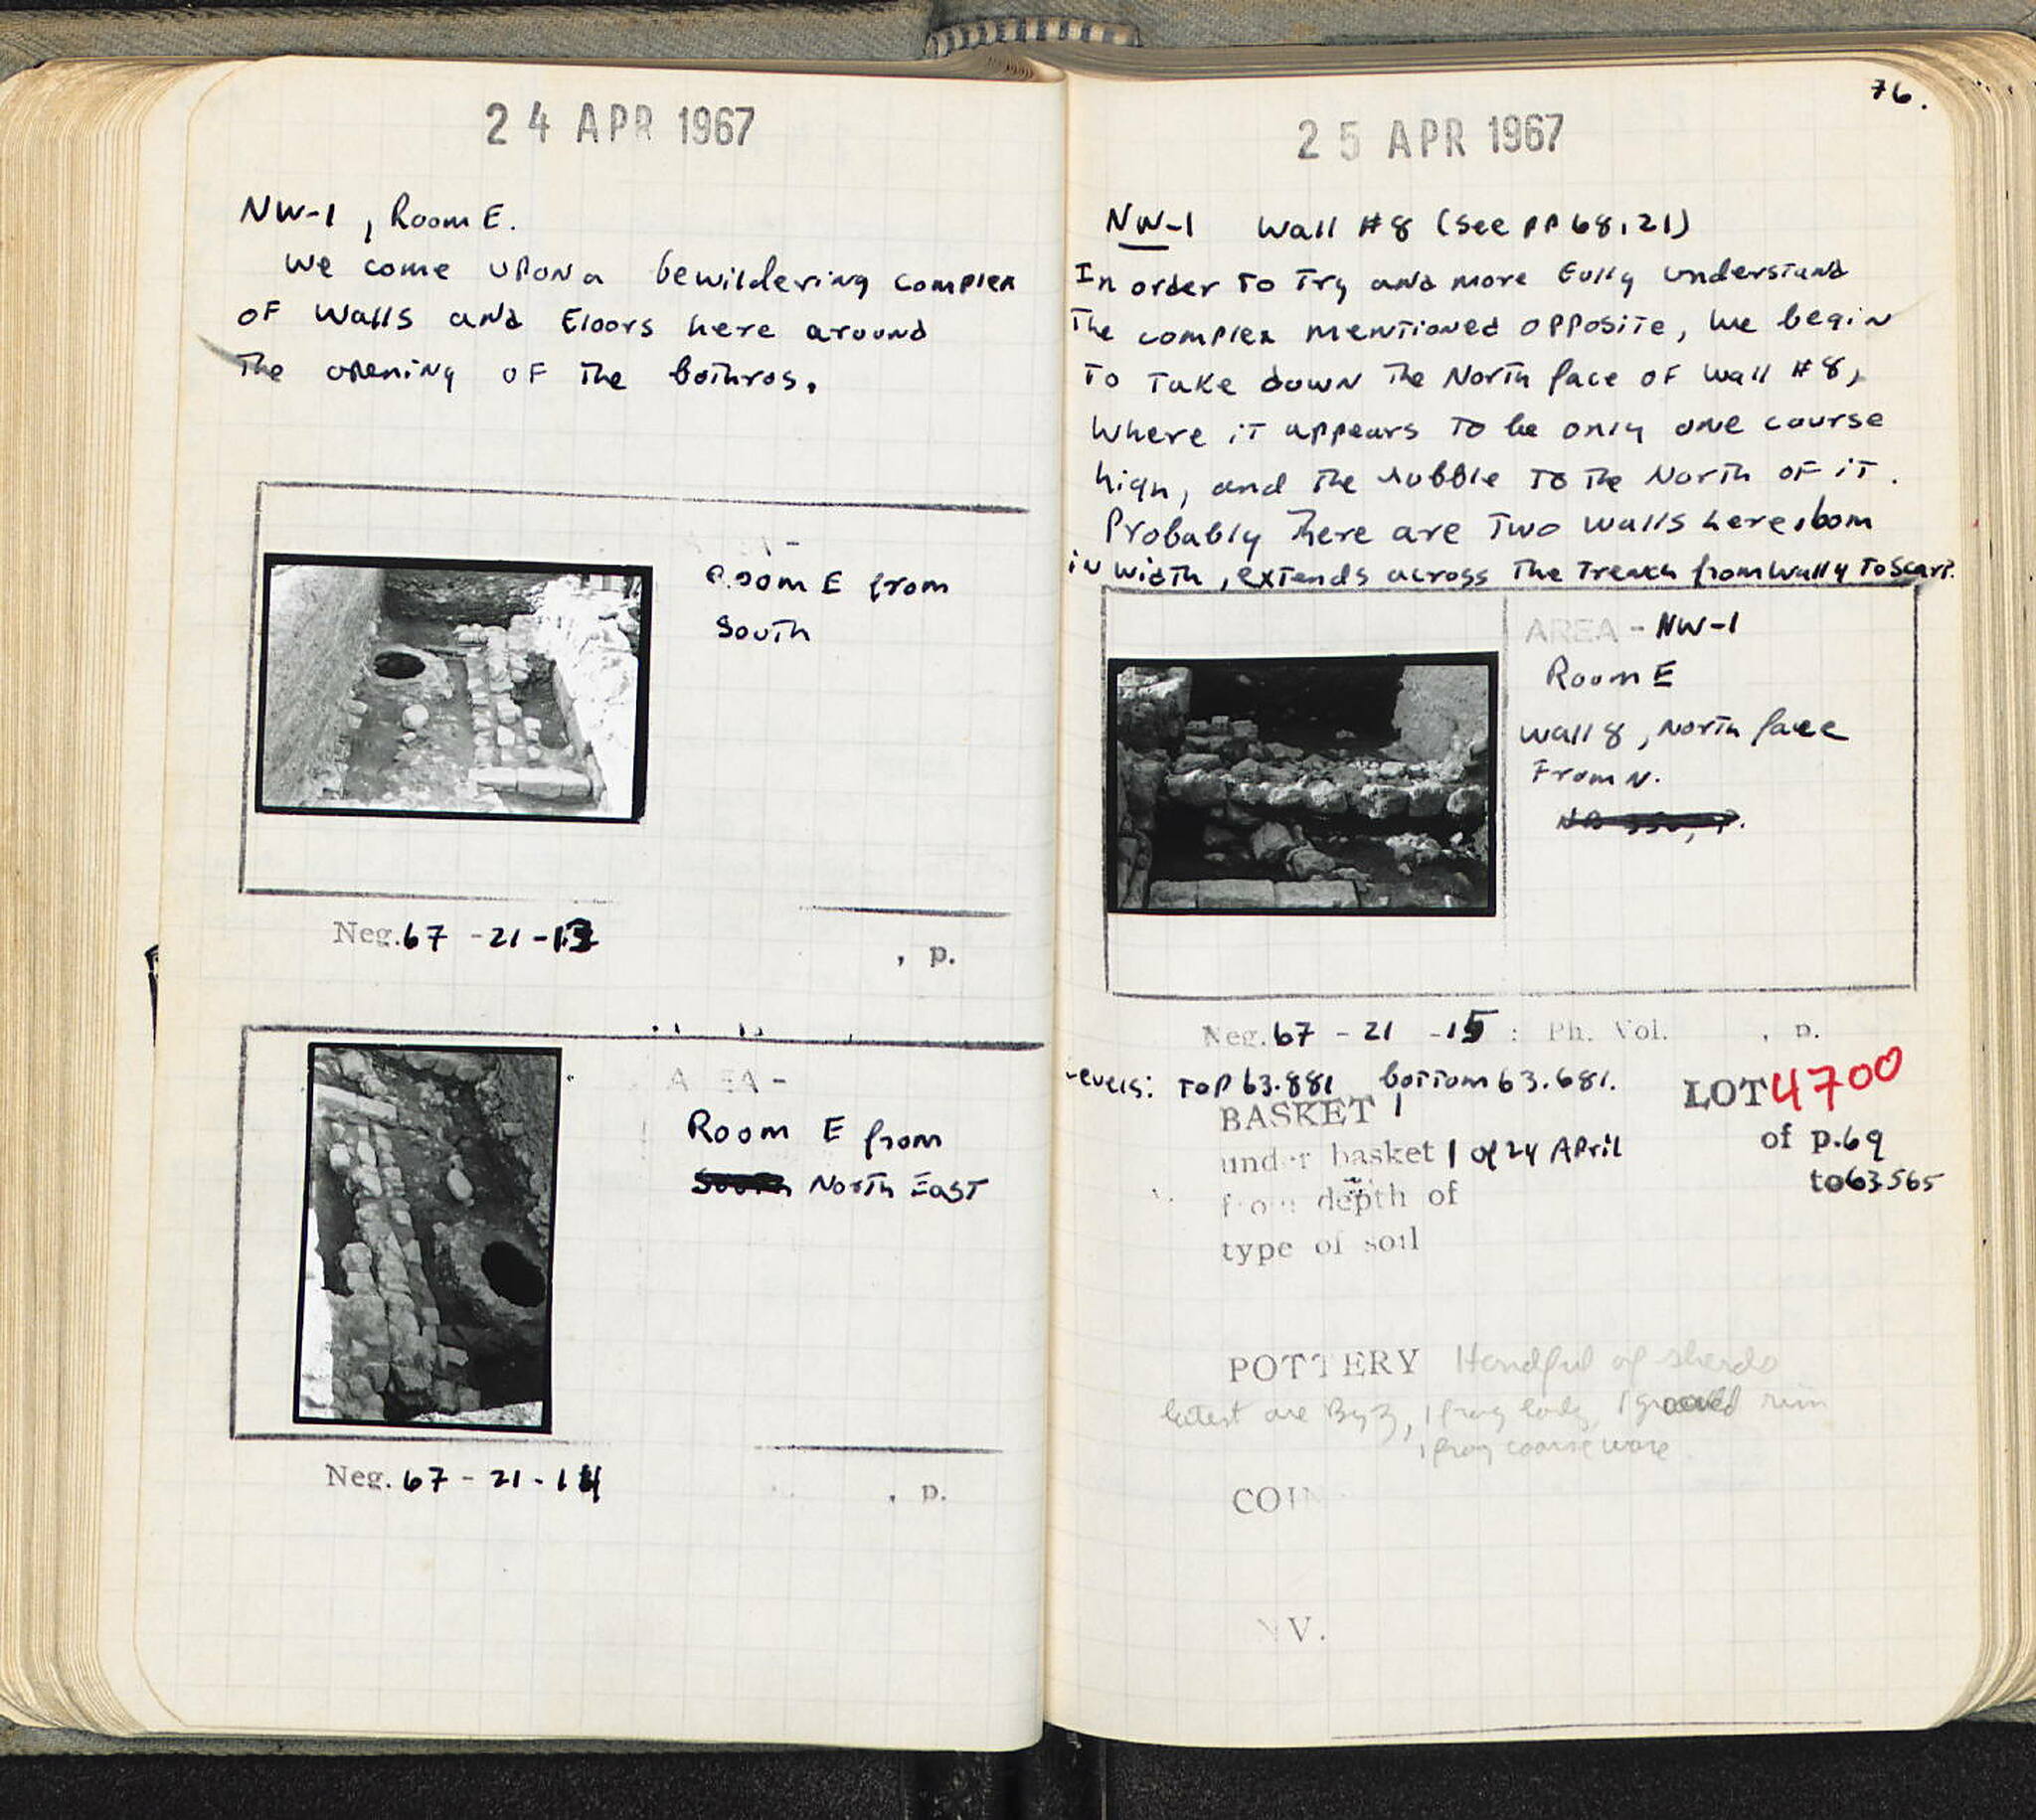 24 APR 1967
NW-1, Room E.
We come upon a bewildering complex
of walls and floors here around
The opening of the bothros.
Room E from
South
Neg. 67 - 21 - 13
, p.
AREA -
Room E from
North East
Neg. 67 - 21 - 14
, p.
76.
25 APR 1967
NW-1 Wall #8 (see pp 68, 21)
In order to try and more fully understand
the complex mentioned opposite, we begin
to take down the North face of Wall #8,
where it appears to be only one course
high, and the rubble to the North of it.
Probably there are two walls here
in width, extends across the trench from Wall 4 to scarp.
AREA - NW-1
Room E
Wall 8, North face
From N.
Neg. 67 - 21 - 15 : Ph. Vol. , p.
Levels: top 63.881 bottom 63.681.
LOT 4700
BASKET 1
of p. 69
under basket 1 of 24 April
to 63.565
from depth of
type of soil
POTTERY Handful of sherds
latest are Byz, 1 frag body, 1 grooved rim
1 frag coarse ware
COIN
NV.